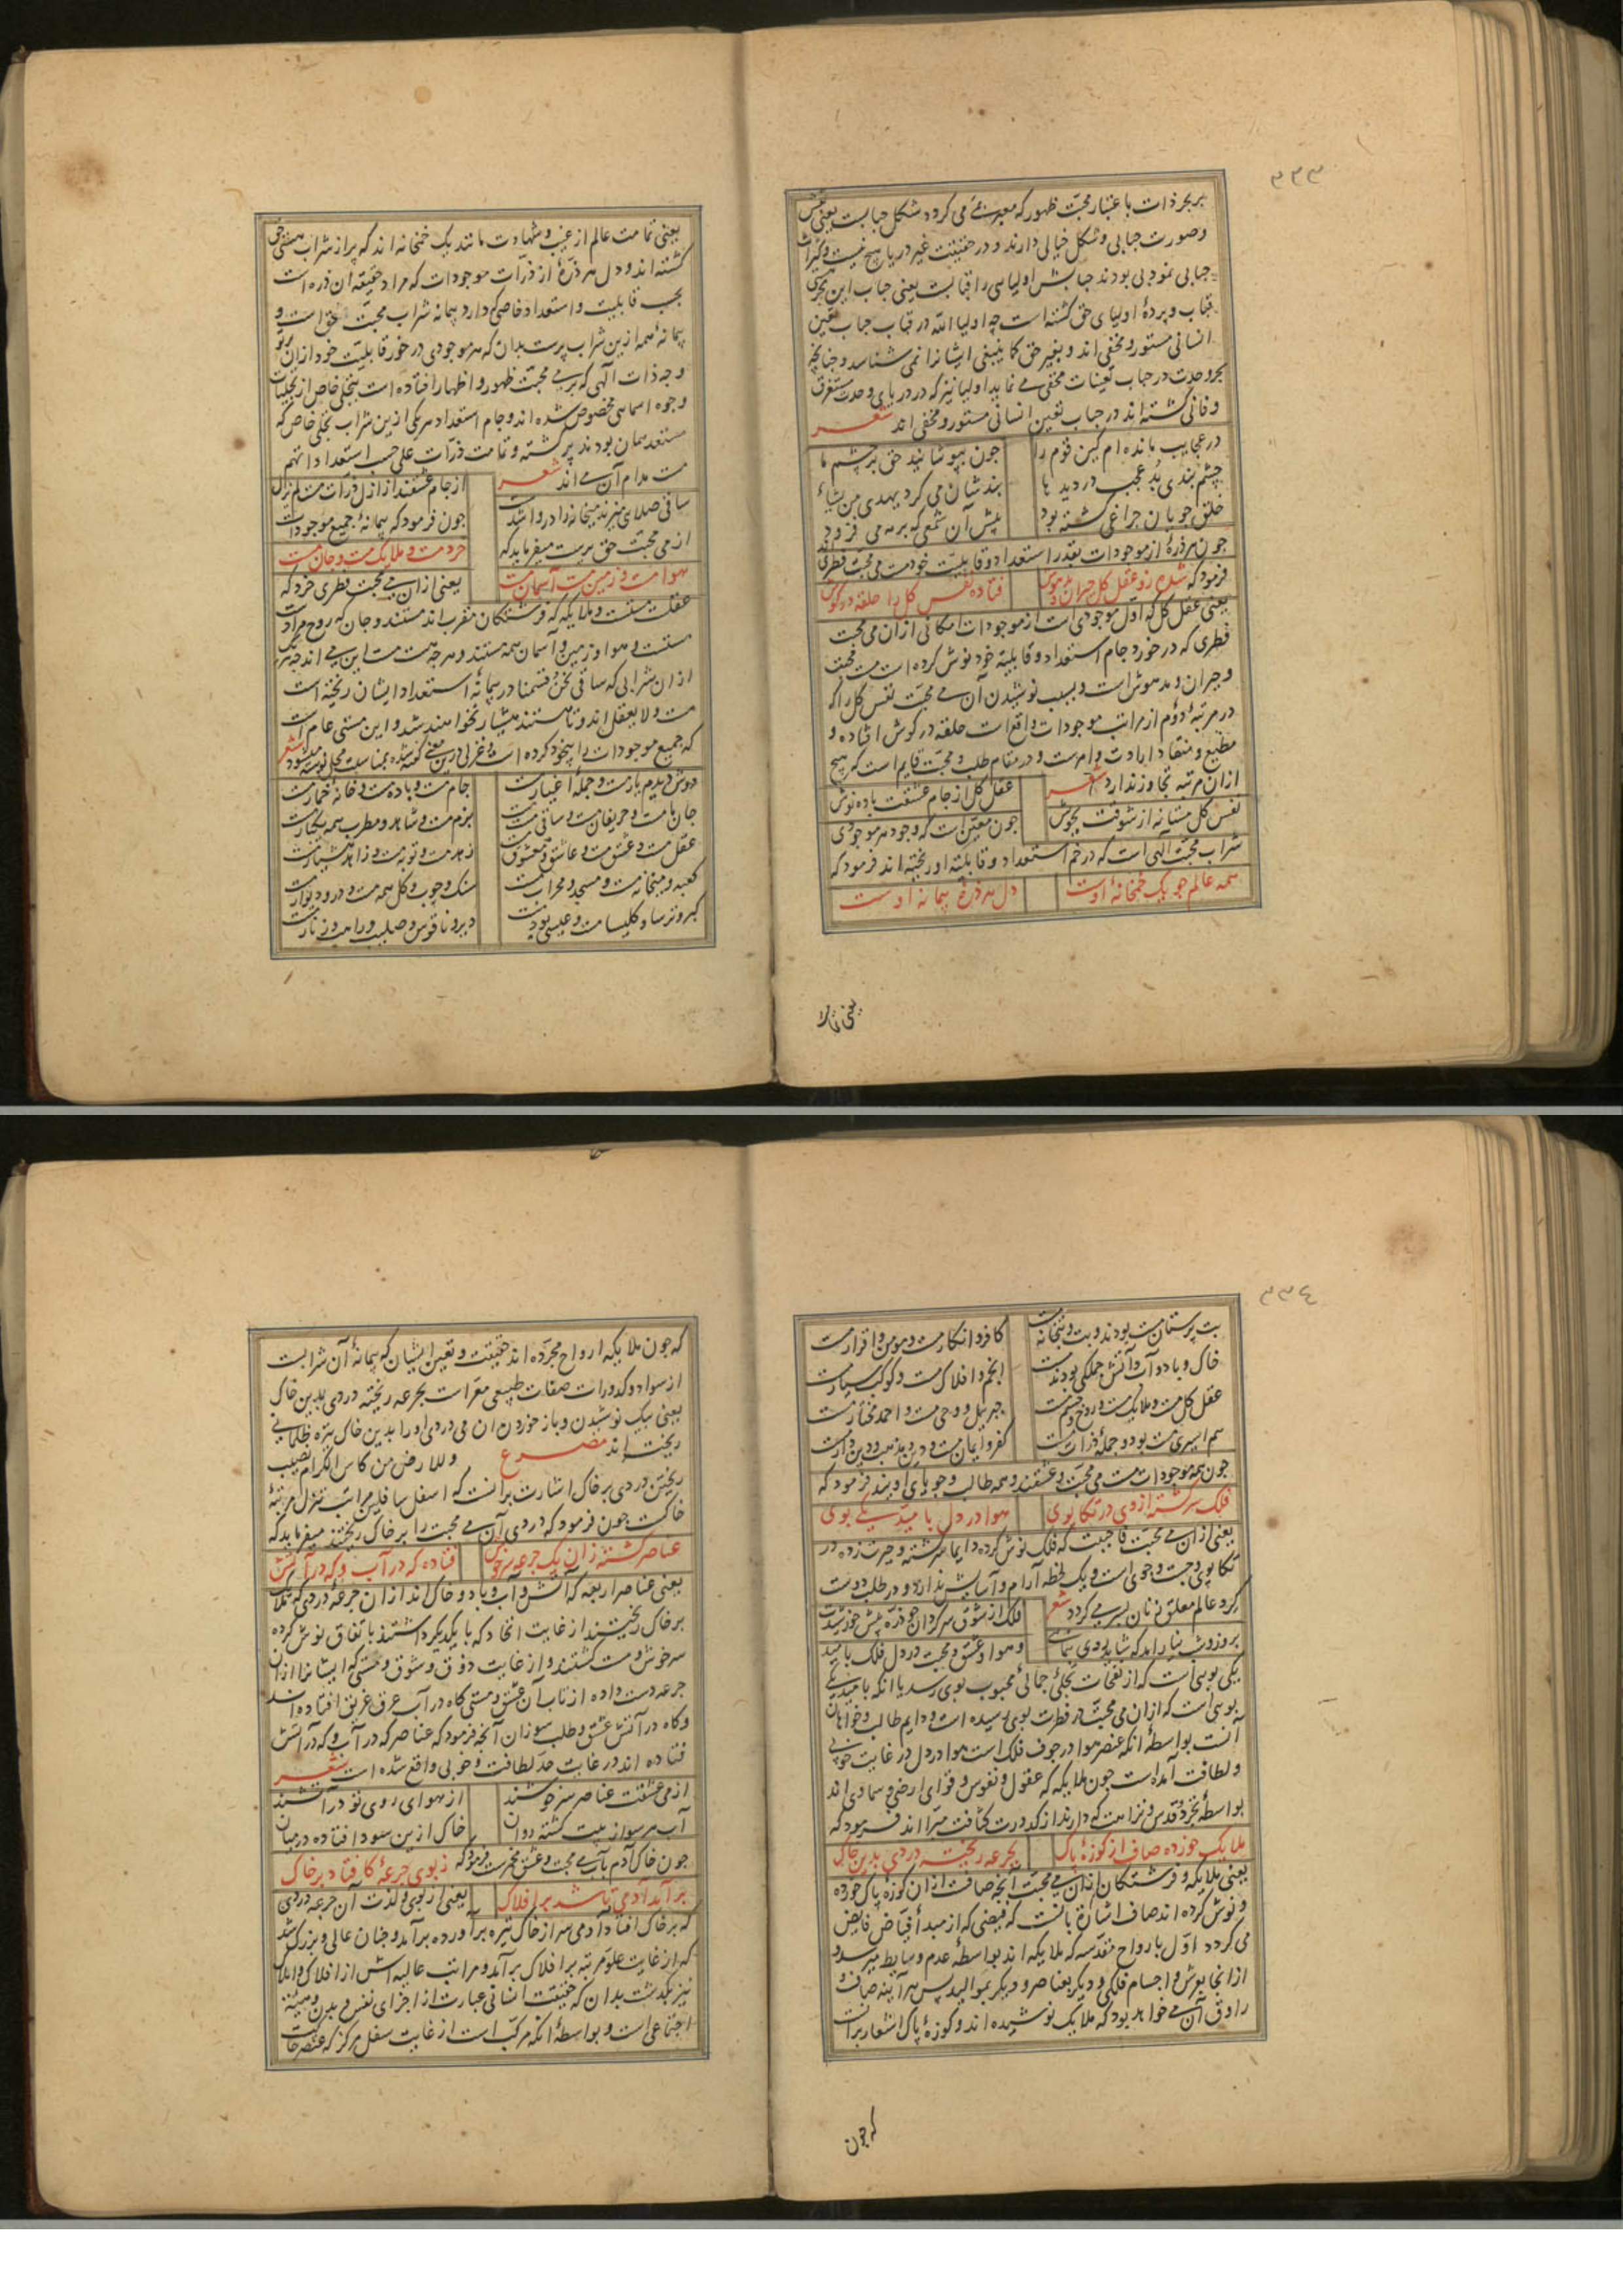 ٣٣٣
بر بحر ذات باعتبار محبت ظهور که معبر بمی می کردد شکل حبابست یعنی نقش
وصورت حبابی وشکل خیالی دارند و در حقیقت غیر دریا هیچ نیست و کثرات
حبابی نمود بی بودند حبابش اولیایی را قبابست یعنی حباب این بحر می
قباب و پردهٔ اولیای حق کشته است چه اولیاء الله در قباب حباب تعین
انسانی مستور و مخفی اند و بغیر حق کما ینبغی ایشانرا نمی شناسد و چنانچه
بحر وحدت در حباب تعینات مخفی می نماید اولیا نیز که در دریای وحدت مستغرق
و فانی کشته اند در حباب تعین انسانی مستور و مخفی اند شعر
در عجایب مانده ام کین قوم را چون بپوشانید حق بر چشم ما
چشم بندی بد عجب در دیدها بندشان می کرد یهدی من یشاء
خلق جویان چراغی کشته بود پیش آن شمعی که بر مه می فزود
چون هر ذره از موجودات بقدر استعداد و قابلیت خود مست می محبت فطری اند
فرمود که شده زو عقل کل حیران و مدهوش فتاده نفس کل را حلقه در کوش
یعنی عقل کل که اول موجودی است از موجودات امکانی ازان می محبت
فطری که در خورد جام استعداد و قابلیتهٔ خود نوش کرده است مست محبت
و حیران و مدهوش است و بسبب نوشیدن آن می محبت نفس کل را که
در مرتبهٔ دوم از مراتب موجودات واقع است حلقه در کوش افتاده و
مطیع و منقاد ارادت و امرست و در مقام طلب و محبت قایم است که هیچ
ازان مرتبه تجاوز ندارد شعر عقل کل از جام عشقت باده نوش
نفس کل مستانه از شوقت بجوش چون معین است که وجود هر موجودی
شراب محبت الهی است که در خم استعداد و قابلیته او ریخته اند فرمود که
همه عالم چو یک خمخانه اوست دل هر ذرهٔ پیمانه اوست
یعنی تمامت
یعنی تمامت عالم از غیب و شهادت مانند یک خمخانه اند که پر از شراب هستی حق
کشته اند و دل هر ذرهٔ از ذرات موجودات که مراد حقیقه ان ذره است
بحسب قابلیت و استعداد خاص که دارد پیمانه شراب محبت حق است و
پیمانهٔ همه ازین شراب پرست بدان که هر موجودی در خور قابلیت خود ازان پرتو
وجه ذات الهی که بر می محبت ظهور و اظهار افتاده است بتجلی خاص از تجلیات
وجوه اسمایی مخصوص شده اند و جام استعداد هر یکی ازین شراب تجلی خاص که
مستعد همان بودند پر کشته و تمامت ذرات علی حسب استعداداتهم
مست مدام آن می اند شعر از جام عشقند از ازل ذرات مست لم یزل
ساقی صلای میزند میخانه را در واشدست چون فرمود که پیمانهٔ جمیع موجودات
از می محبت حق پرست میفرماید که خرد مست و ملایک مست و جان مست
هوا مست و زمین مست آسمان مست یعنی ازان می محبت فطری خرد که
عقلست مستست و ملایکه که فرشتکان مقرب اند مستند و جان که روح مرادست
مستست و هوا و زمین و آسمان همه مستند و هر چه هست مست این می اند چه هر یک
ازان شرابی که ساقی نحن قسمنا در پیمانهٔ استعداد ایشان ریخته است
مست و لایعقل اند و تا هستند هشیار نخواهند شد و این مستی عام است
که جمیع موجودات را بیخود کرده است و غزلی درین معنی گفته شده بمناسبت محل نوشته میشود شعر
دوش دیدم یار مست و جمله اغیار مست جام مست و باده مست و خانه خمار مست
جان ما مست و حریفان مست و ساقی مست بزم مست و شاهد و مطرب همه یکبار مست
عقل مست و عشق مست و عاشق و معشوق مست زهد مست و توبه مست و زاهد هشیار مست
کعبه و میخانه مست و مسجد و محراب مست سنک و چوب و کل همه مست و در و دیوار مست
کبر و ترسا و کلیسا مست و عیسی بود مست دیر و ناقوس و صلیب و راهب و زنار مست
٣٣٤
بت پرستان مست بودند و بت و بتخانه مست کافر و انکار مست و مومن و اقرار مست
خاک و باد و آب و آتش جملکی بودند مست انجم و افلاک مست و کوکب سیار مست
عقل کل مست و ملایک مست و روح و جسم مست جبریل و وحی مست و احمد مختار مست
هم اسیری مست بود و جمله ذرات مست کفر و ایمان مست و دین و مذهب و دیندار مست
چون همه موجودات مست می محبت و عشقند و همه طالب و جویای اویند فرمود که
فلک سرکشته از وی در تکاپوی هوا در دل بامید یکی بوی
یعنی ازان می محبت فاحببت که فلک نوش کرده دایما سرکشته و حیرت زده در
تکاپوی و جست و جوی است و یک لحظه آرام و آسایش ندارد و در طلب دوست
کرد عالم معلق زنان بسر می کردد شعر فلک از شوق سرکردان چو ذره پیش خورشیدت
بروز و شب نیاراید که شاید بودی بنمای و هوا و عشق و محبت در دل فلک بامید
یکی بویی است که از نفحات تجلی جمالی محبوب بوی رسد یا انکه بامید یکی
بویی است که ازان می محبت در فطرت بوی رسیده است و دایم طالب و خواهان
آنست بواسطهٔ انکه عنصر هوا در جوف فلک است هوا در دل در غایت خوبی
و لطافت آمده است چون ملایکه که عقول و نفوس و قوای ارضی و سماوی اند
بواسطهٔ تجرد و قدس و نزاهت که دارند از کدورت کثافت مبرا اند فرمود که
ملایک خورده صاف از کوزهٔ پاک بجرعه ریخته دردی بدین خاک
یعنی ملایکه و فرشتکان ازان می محبت آنچه صافست ازان کوزه پاک خورده
و نوش کرده اند صاف اشارت بانست که فیضی که از مبدا فیاض فایض
می کردد اول بارواح مقدسه که ملایکه اند بواسطهٔ عدم وسایط میرسد و
از انجا بعرش و اجسام فلکی و دیگر بعناصر و دیگر بموالید پس هر آینه صاف و
راوق آن می خواهد بود که ملایک نوشیده اند و کوزهٔ پاک اشعار برانست
که چون
که چون ملایکه ارواح مجرده اند حقیقت و تعین ایشان که پیمانهٔ آن شرابست
از سواد و کدورات صفات طبیعی معراست بجرعه ریخته دردی بدین خاک
یعنی بیک نوشیدن و باز خوردن ان می دردی او را بدین خاک تیره ظلمانی
ریخته اند مصرع وللارض من کاس الکرام نصیب
ریختن دردی بر خاک اشارت برانست که اسفل سافلین مراتب تنزل مرتبهٔ
خاکست چون فرمود که دردی آن می محبت را بر خاک ریختند میفرماید که
عناصر کشته زان یک جرعه سرخوش فتاده که در آب و که در آتش
یعنی عناصر اربعه که آتش و آب و باد و خاک اند ازان جرعهٔ دردی که ملایک
بر خاک ریختند از غایت اتحاد که با یکدیگر داشتند باتفاق نوش کرده
سرخوش و مست کشتند و از غایت ذوق و شوق و مستی که ایشانرا ازان
جرعه دست داده از تاب آن عشق و مستی کاه در آب غرق غریق افتاده اند
و کاه در آتش عشق و طلب سوزان آنچه فرمود که عناصر که در آب و که در آتش
فتاده اند در غایت حد لطافت و خوبی واقع شده است شعر
از می عشقت عناصر سرخوشند از هوای روی تو در آتشند
آب هر سو از پیت کشته دوان خاک ازین سودا فتاده در میان
چون خاک آدم بآب می محبت و عشق مخمرست فرمود که ز بوی جرعهٔ کافتاد بر خاک
بر آمد آدمی تا شد بر افلاک یعنی از بوی و لذت آن جرعه دردی
که بر خاک افتاد آدمی سر از خاک تیره بر آورده برآمد و چنان عالی و بزرک شد
که از غایت علو مرتبه بر افلاک برآمد و مراتب عالیه اش از افلاک و املاک
نیز بگذشت بدان که حقیقت انسانی عبارت از اجزای نفس و بدن و هیئة
اجتماعی است و بواسطهٔ انکه مرکب است از غایت سفل مرکز که عنصر خاکست